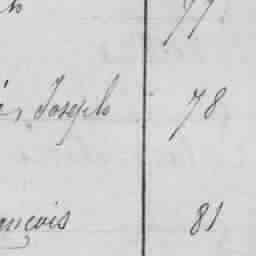 77
Joseph 78
ançois 81